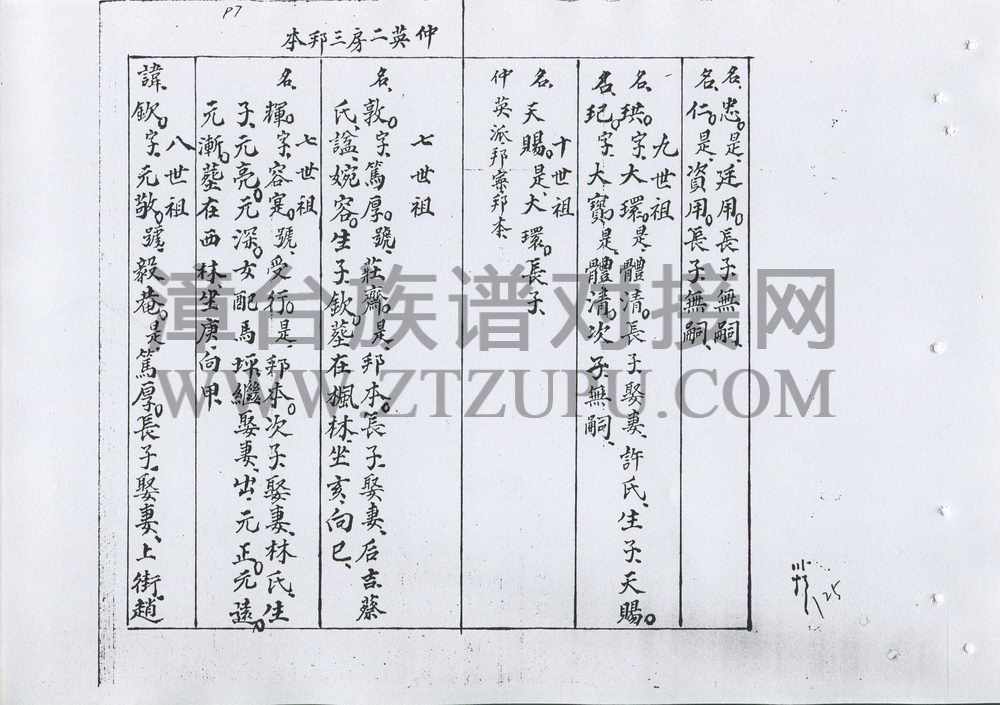 P7
仲英二房三邦本
名忠。是廷用。長子無嗣、
名仁。是資用。長子無嗣、
九世祖
名珙。字大環。是體清。長子娶妻許氏生子天賜。
名玘。字大寶。是體清。次子無嗣、
十世祖
名天賜。是大環。長子、
仲英派邦寧邦本、
七世祖
名敦。字篤厚。號莊齋。是邦本。長子娶妻后吉蔡
氏諡婉容。生子欽。墓在楓林坐亥向巳、
七世祖
名輝。字容寔。號受行。是邦本。次子娶妻林氏生
子元亮。元深。女配馬坪繼娶妻出元正。元遠。
元漸。墓在西林坐庚向甲
八世祖
諱欽。字元敬。號毅菴。是篤厚。長子娶妻上街趙
125
漳台族谱对接网
WWW.ZTZUPU.COM